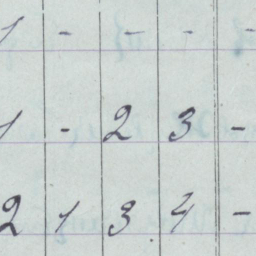 1 - - - -
1 - 2 3 -
2 1 3 4 -